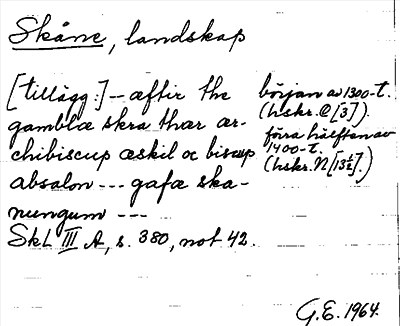 Skåne, landskap
[tillägg:] -- æftir the
gamblæ skra thær ær-
chibiscup æskil oc biscup
absalon --- gafæ ska-
nungum ---
SkL III A, s. 380, not 42.
början av 1300-t.
(hskr. C [3]).
förra hälften av
1400-t.
(hskr. N [13 1/2].)
G.E. 1964.